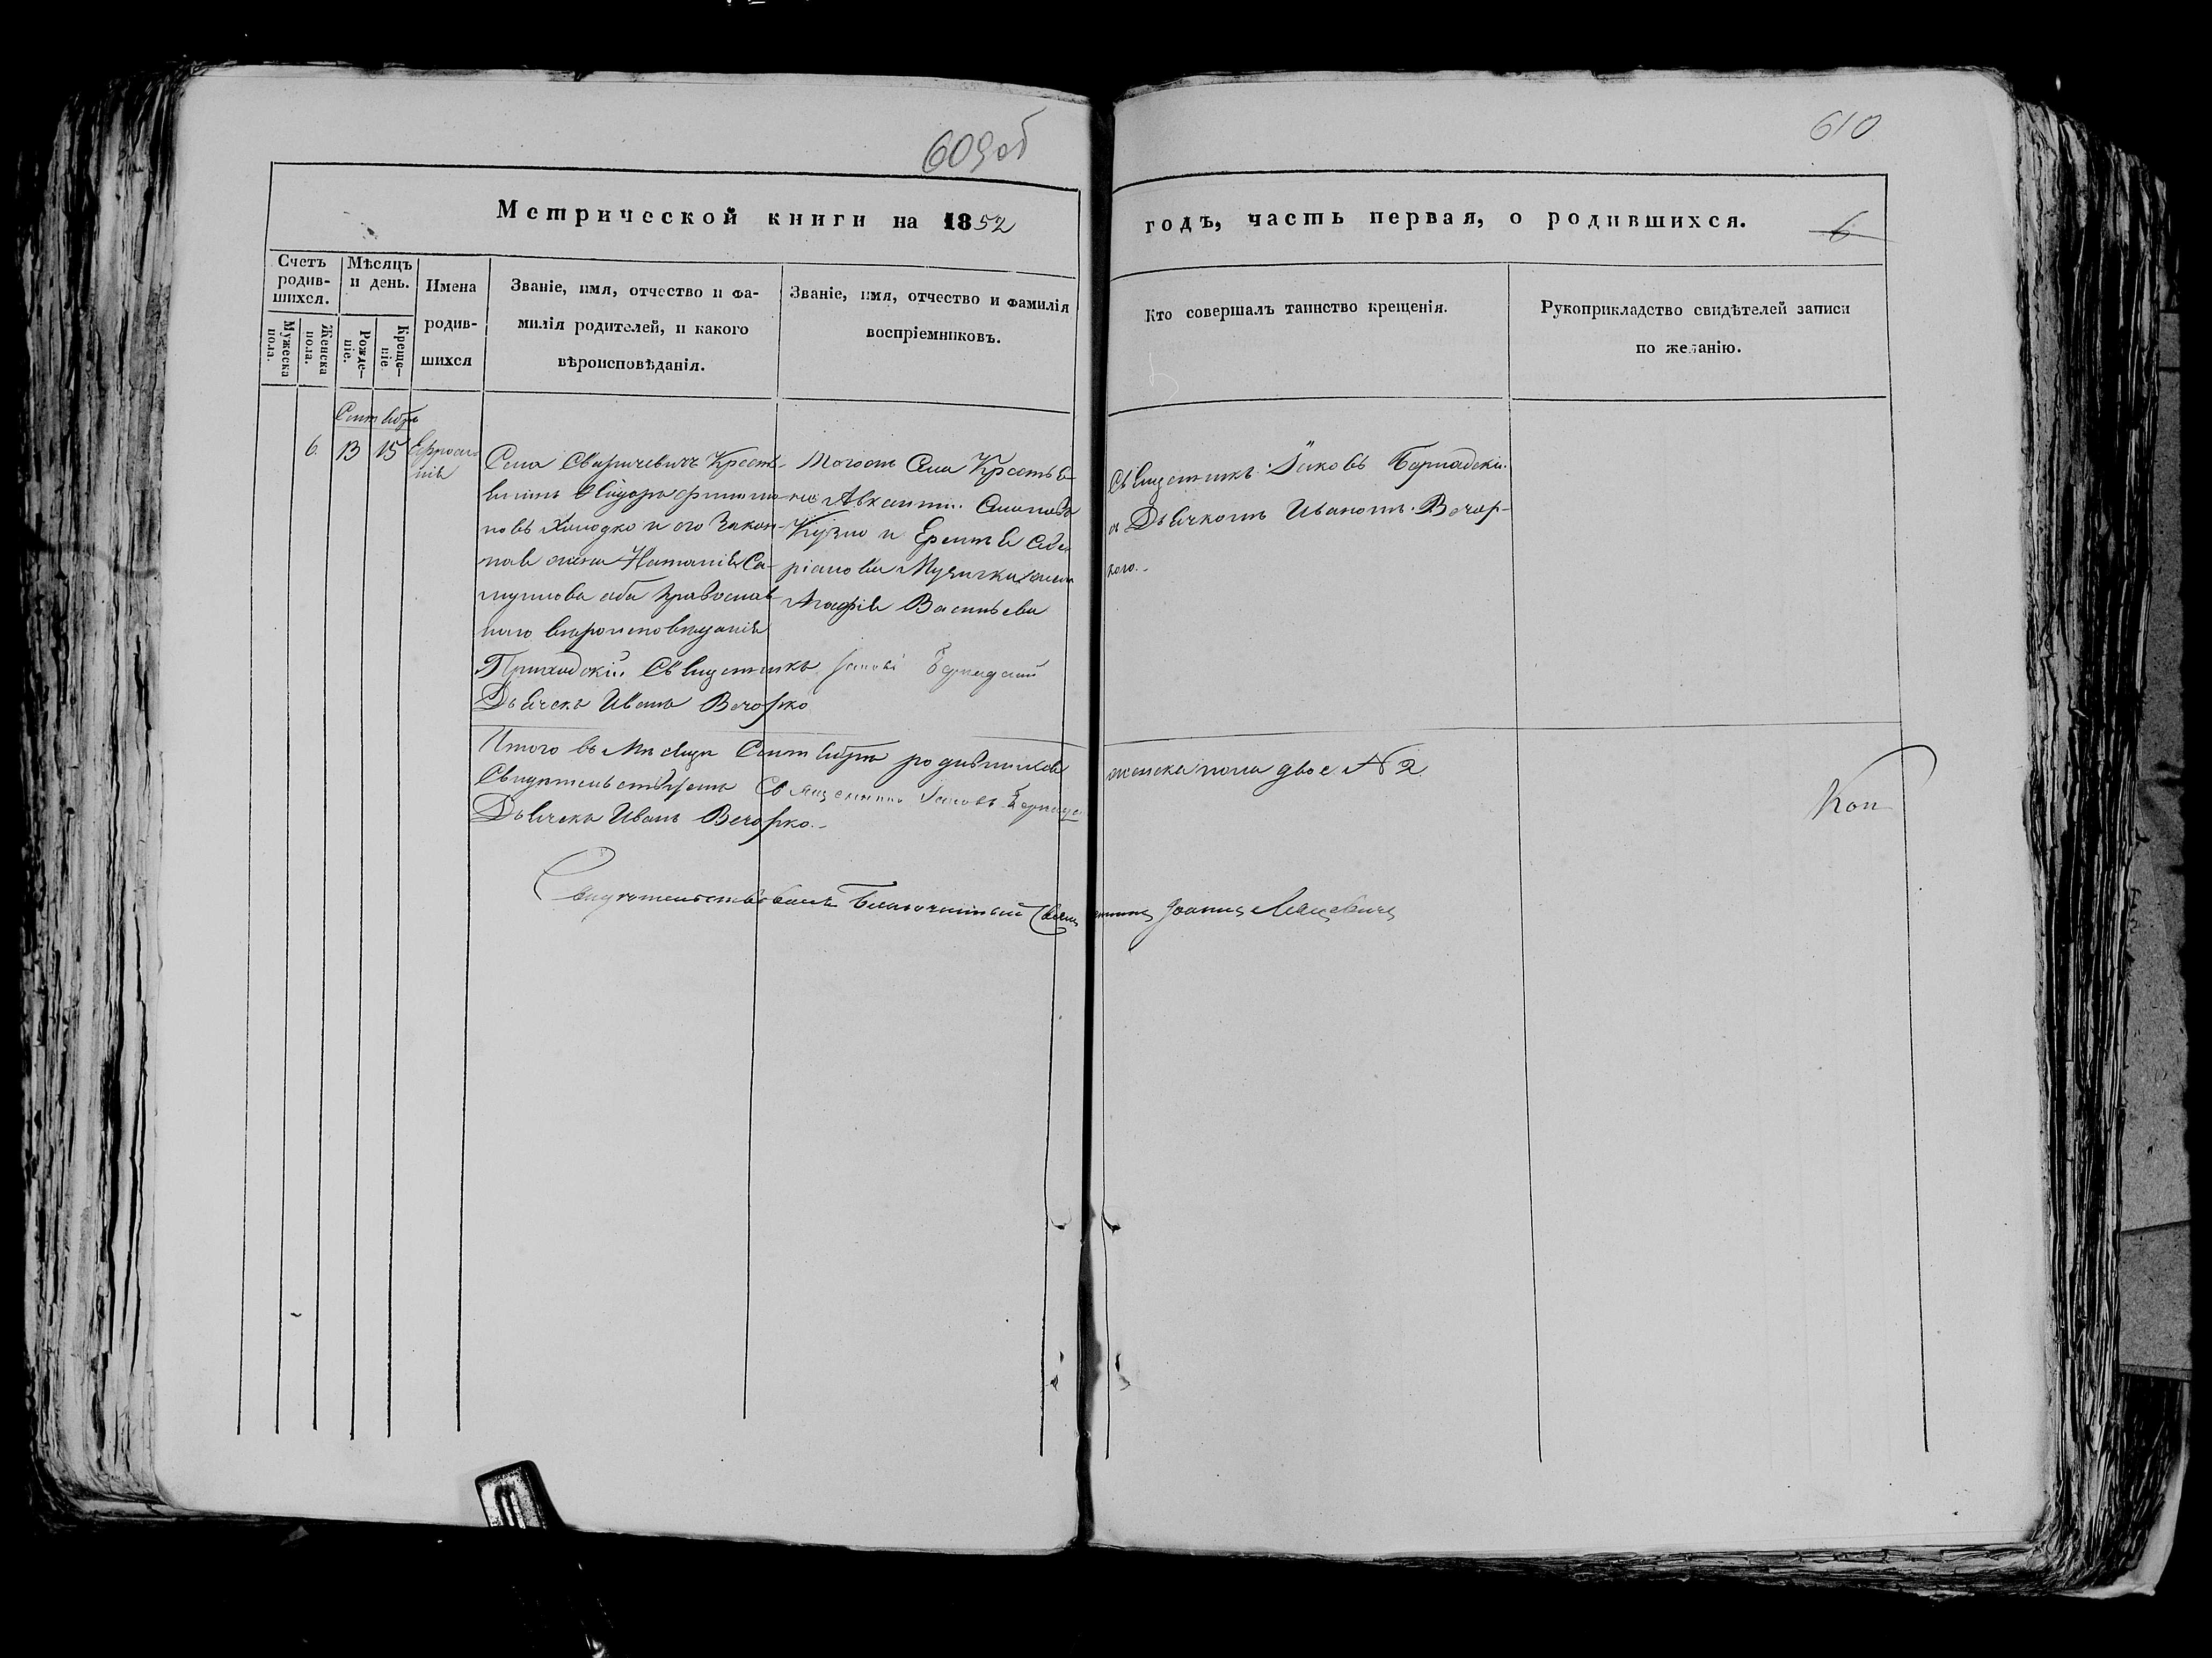 609об
610
Метрической книги на 1852
годъ, часть первая, о родившихся.
6
Счетъ родив-шихся.
Мужеска пола.
Женска пола.
Мѣсяцъ и день.
Рожде-ніе.
Креще-ніе
Имена
родив-
шихся
Званіе, имя, отчество и фа-
милія родителей, и какого
вѣроисповѣданія.
Званіе, имя, отчество и фамилія
воспріемниковъ.
Кто совершалъ таинство крещенія.
Рукоприкладство свидѣтелей записи
по желанію.
Сентября
6. 13 15 Ефроси-
нія
Села Сваричевичъ Крестья-
нинъ
новъ Холодко и его закон-
ная жена Наталія Са-
муилова оба православ-
наго вѣроисповѣданія
Приходскій Священникъ
Дьячекъ Иванъ Вечорко
Тогожъ села Крестья-
не
Кузмы и
Музычки жена
Агафія Васильева
Священникъ Іаковъ
съ Дьячкомъ Иваномъ Вечор-
комъ.
Итого въ мѣсяцѣ Сентябрѣ родившихся
женска пола двое № 2
Свидѣтельствуемъ Священникъ Іаковъ
Дьячекъ Иванъ Вечорко.
Коп
Свидѣтельствовалъ Благочинный Священникъ Іоаннъ